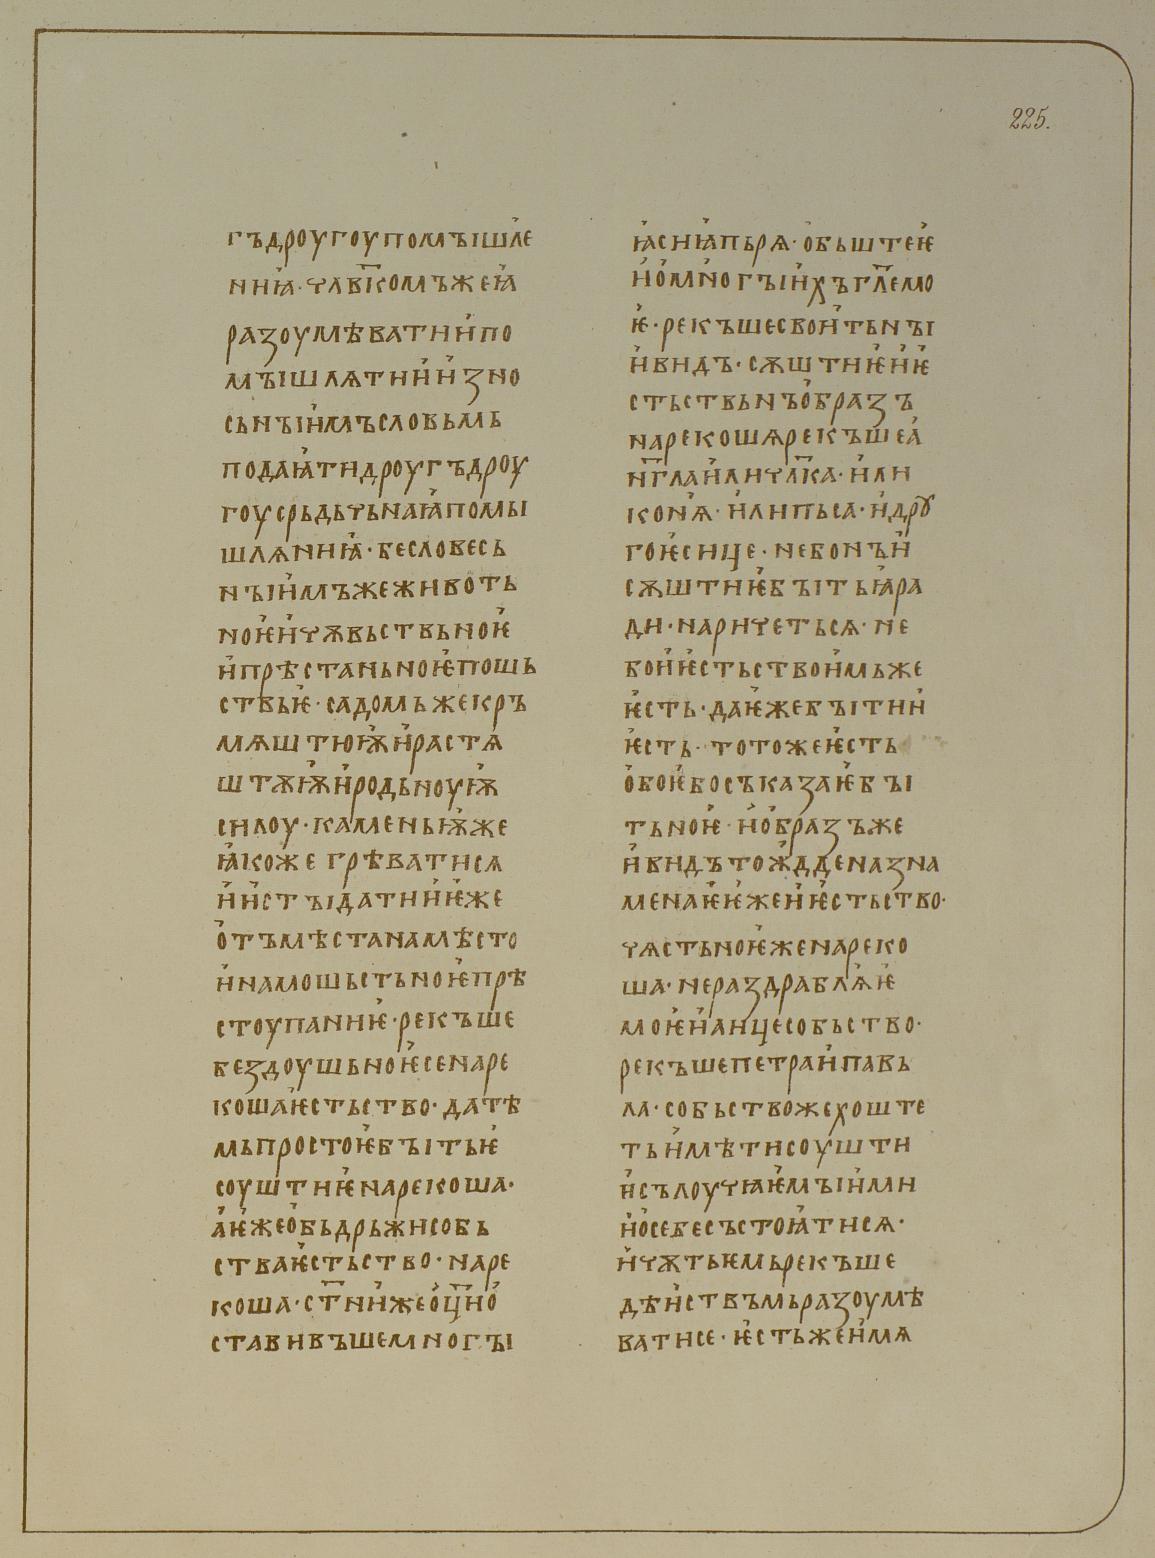 225.
гъдроугоупомъішле
ниꙗ·чл҃вкомъжеꙗ
разоумѣватиипо
мъішлѧтиіиизно
сьнъіимъсловьмь
подаꙗтидроугъдроу
гоусрьдьчьнаꙗпомъі
шлѧниꙗ·бесловесь
нъіимъжеживоть
ноѥичѫвьствьноѥ
ипрѣстаньноѥпошь
ствьѥ·садомьжекръ
мѧштюѭирастѧ
штѫѭиродьноуѭ
силоу·каменьѭже
ꙗкожегрѣватисѧ
иистъідатииѥже
отъмѣстанамѣсто
инамошьстьноѥпрѣ
стоупаниѥ·рекъше
бездоушьноѥсенаре
кошаѥстьство·датѣ
мьпростоѥбъітьѥ
соуштиѥнарекоша·
аѥжеобьдрьжисобь
стваѥстьство·наре
коша·ст҃иижеоц҃ио
ставивъшемногъі
ꙗсниꙗпьрѧ·обьштеѥ
иомногъіихъгл҃емо
ѥ·рекъшесвоитьнъі
ивидъ·сѫштиѥиѥ
стьствьнъобразъ
нарекошѧрекъшеа
нг҃лаиличл҃ка·или
конѧ·илипьса·идрꙋ
гоѥсице·небонъи
сѫштиѥбъітьꙗра
ди·наричетьсѧ·не
боиѥстьствоимьже
ѥсть·даѥжебъітии
ѥсть·тотожеѥсть
обоѥбосъказаѥбъі
тьноѥ·иобразъже
ивидътождденазна
менаѥѥжеиѥстьство·
чѧстьноѥженареко
ша·нераздраблѧѥ
моѥилицесобьство·
рекъшепетраипавь
ла·собьствожехоште
тьимѣтисоушти
исълоучаѥмъіими
иосебесъстоꙗтисѧ·
ичѫтьѥмьрекъше
дѣиствъмьразоумѣ
ватисе·ѥстьжеимѧ